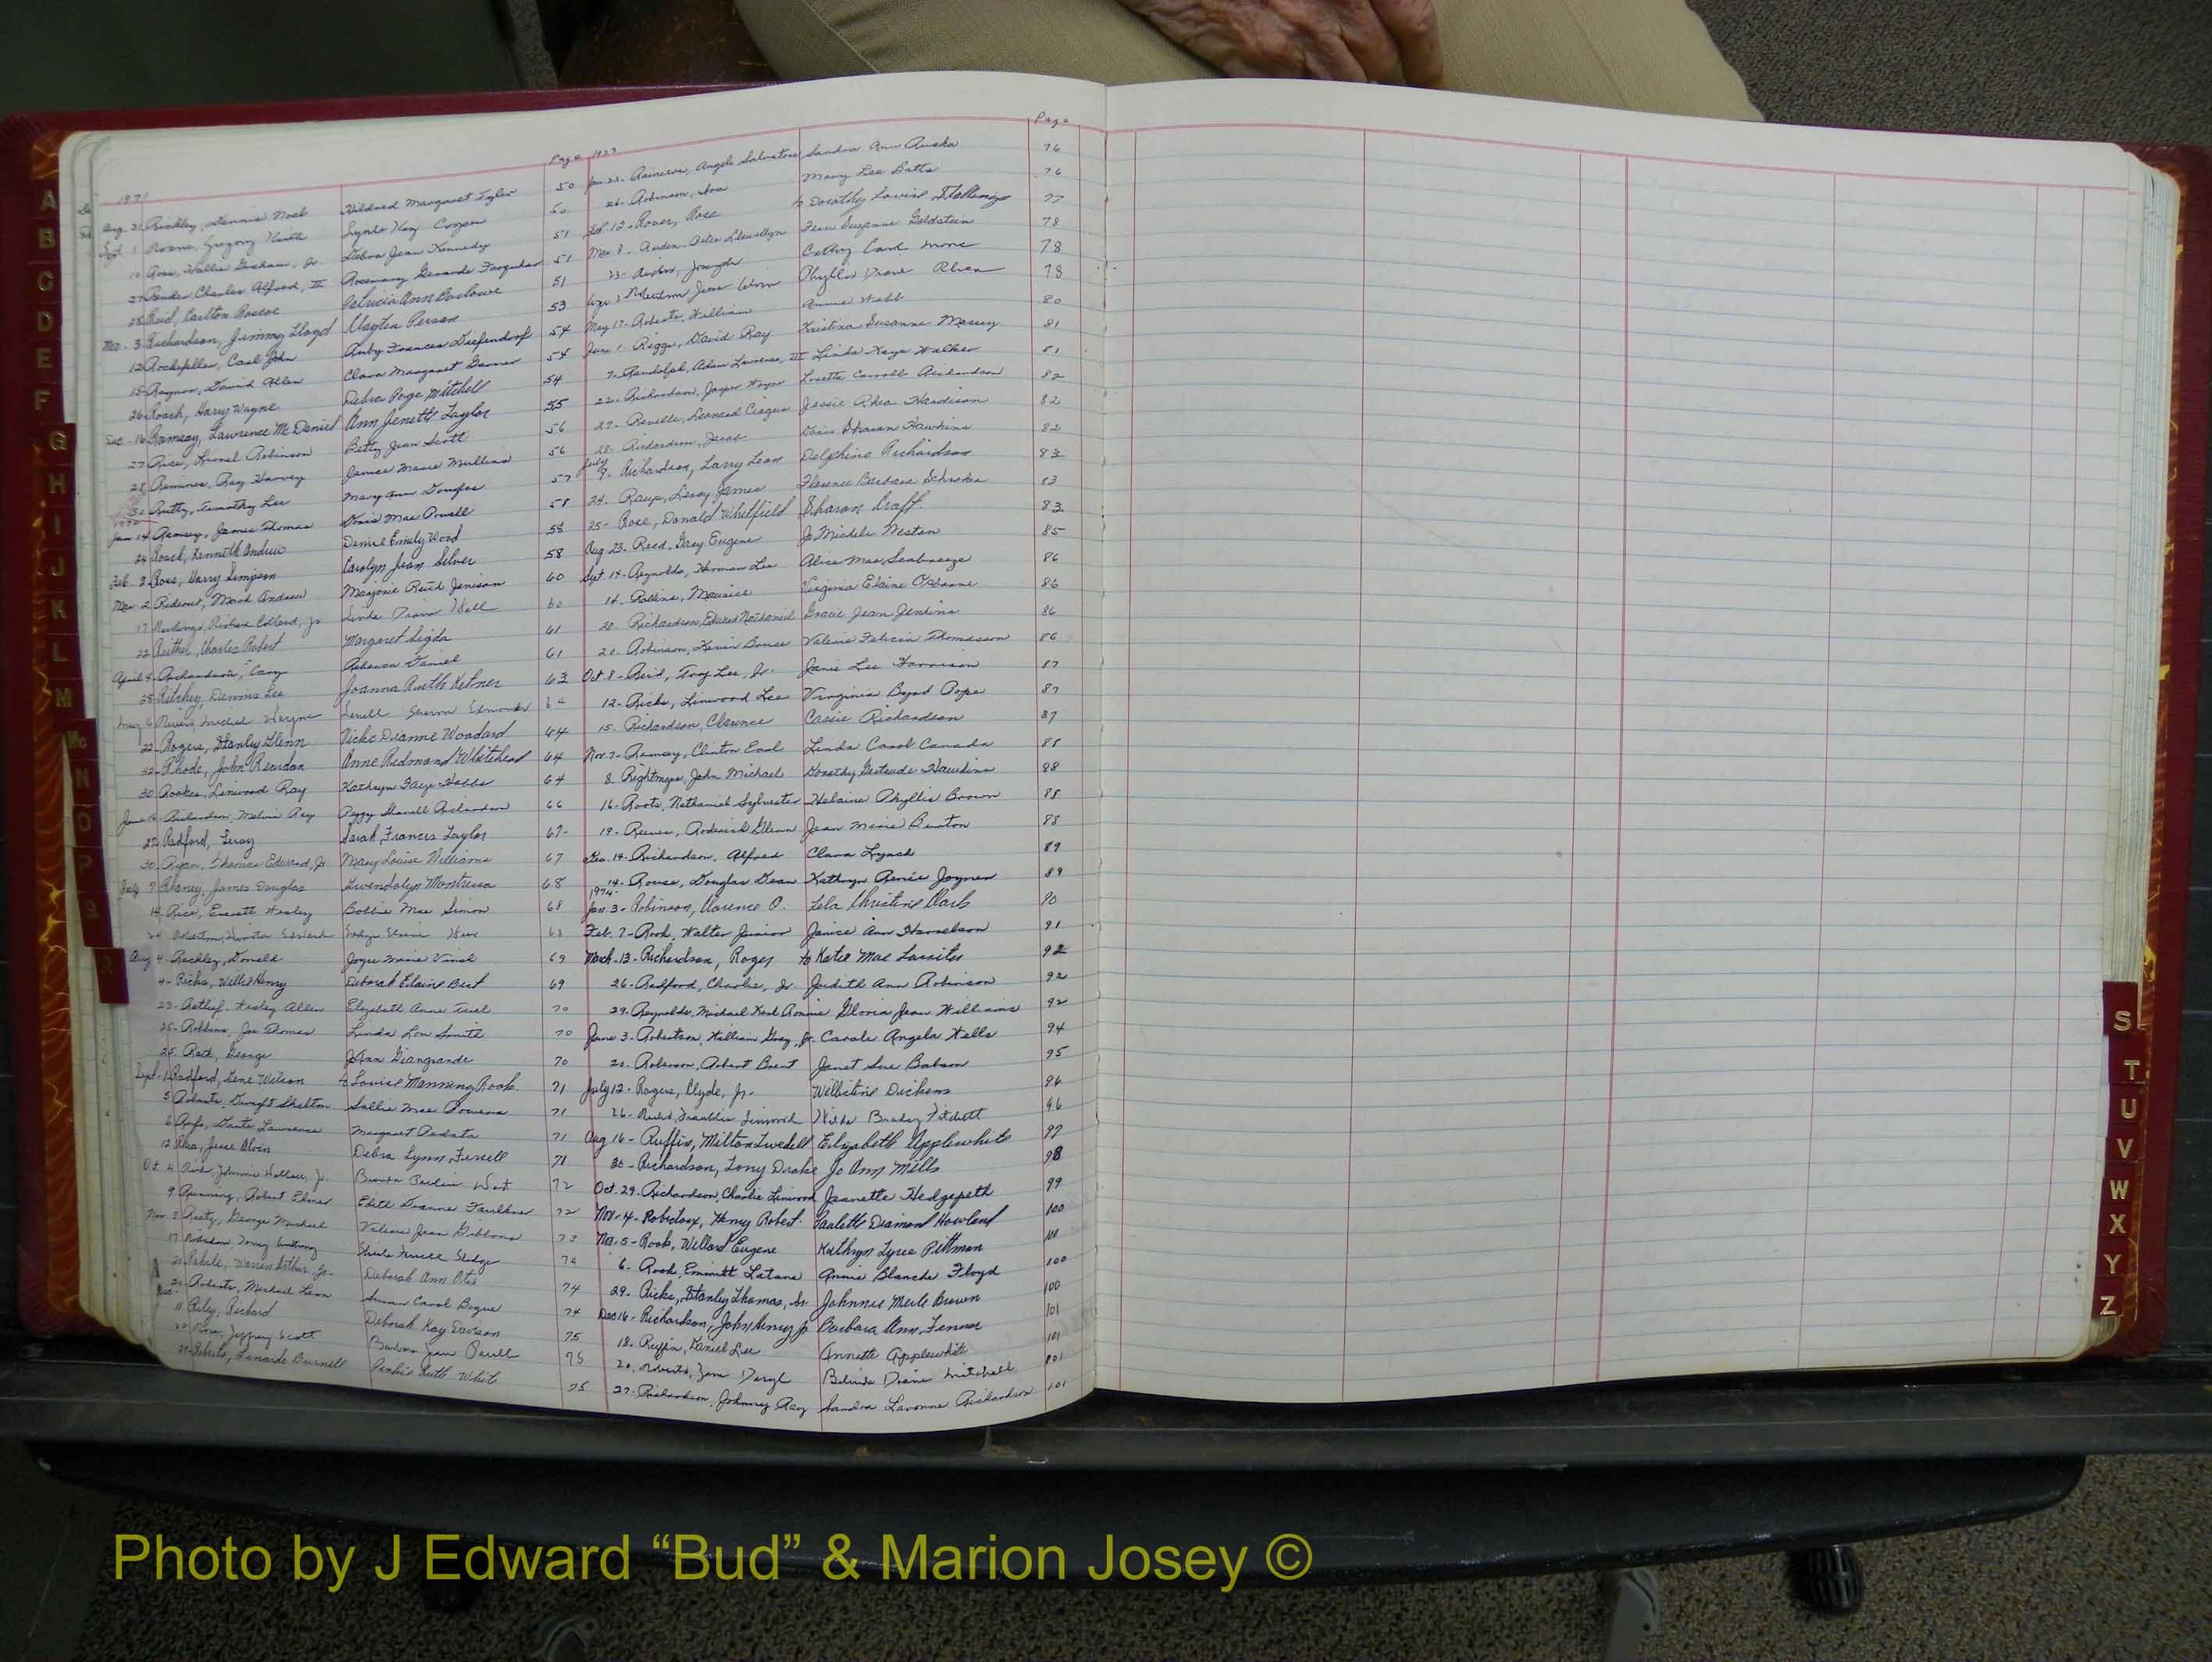 1971 Page
Aug. 21 Rackley, Dennis Noel Mildred Margaret Tyler 50
Sept. 1 Roane, Gregory Lynda Kay Cooper 50
10 Rose, Wallie Graham, Jr. Debra Jean Kennedy 51
Render, Charles Alfred, III Rosemary Gerarde Farquhar 51
28 Reid, Carlton Roscoe Patricia Ann Barlowe 51
Nov. 3 Richardson, Jimmy Lloyd Magten Person 53
12 Rockefeller, Carl John Ruby Frances Diefendorf 54
15 Raynor, David Allen Clara Margaret Garner 54
26 Roach, Harry Wayne Debra Page Mitchell 54
Dec. 16 Ramsay, Lawrence McDaniel Ann Jenette Taylor 55
27 Rice, Lionel Robinson Betty Jean Scott 56
28 Remines, Ray Harvey Janice Marie Mullins 56
Timothy Lee Mary Ann Douglas 57
1972
Jan 14 Ramsey, James Thomas Doris Mae Powell 58
24 Roach, Kenneth Andrew Denise Emily Wood 58
Feb. 3 Rose, Harry Simpson Carolyn Jean Silver 58
Mar. 2 Rideout, Mark Andrew Marjorie Reed Jenison 60
17 Rawlings, Jr Linda Diana Hall 60
22 Reither, Charles Robert Margaret Ligda 61
April 4 Richardson, Cary Rebecca Daniel 61
28 Ritchey, Dennis Lee Joanna Ruth Ketner 63
May 16 Rivers, Michael Wayne Sharon Edmonds 64
22 Rogers, Stanley Glenn Vicki Dianne Woodard 64
22 Rhode, John Reardon Anne Redmond Whitehead 64
30 Rooker, Linwood Ray Kathryn Faye Hobbs 64
June 16 Richardson, Melvin Ray Peggy Richardson 66
27 Radford, Leroy Sarah Frances Taylor 67
30 Ryan, Thomas Edward, Jr Mary Louise Williams 67
July 7 Raney, James Douglas Gwendolyn Montressa 68
14 Rice, Everett Wesley Bobbie Mae Simon 68
24 Robertson, Edward Evelyn Elaine 68
Aug 4 Rackley, Donald Joyce Marie Vinal 69
4 Ricks, Willie Henry Deborah Elaine Best 69
23 Wesley Allen Elizabeth Anne 70
25 Robbins, Joe Thomas Linda Lou Smith 70
25 George JoAnn Giangrande 70
Sept. 1 Radford, Gene Wilson to Louise Manning Rook 71
5 Roberts, Dwight Shelton Sallie Mae Powers 71
6 Dante Lawrence Margaret 71
12 Rhea, Jesse Alvin Debra Lynn Ferrell 71
Oct. 4 Johnnie Wallace, Jr. West 72
9 Robert Elmer Edith Dianne Faulkner 72
Nov. 3 George Michael Valerie Jean Gibbons 73
17 Tommy Anthony Sledge 74
Warren Arthur Jr. Deborah Ann Otis 74
21 Roberts, Michael Leon Susan Carol Bogue 74
Dec.
11 Riley, Richard Deborah Kay Davison 75
22 Rose, Jeffrey Scott Barbara Jean Powell 75
29 Roberts, Lenardo Burnell Pinkie Ruth White 75
1973 Page
Jan. 22 Angelo Salvatore Sandra Ann 76
26 Robinson, Ira Mary Lee Batts 76
Feb 12 Rover, Rose to Dorothy Louise Stallings 77
Mar. 8 Peter Llewellyn Fern Suzanne Goldstein 78
23 Joseph Cathy Carol 78
Robertson Phyllis Diane 78
May 17 Roberts, William Annie Webb 80
June 1 Riggs, David Ray Kristina Susanne Massey 81
7 Randolph, Adam Lawrence, III Linda Kaye Walker 81
22 Richardson, Jasper Wayne Loretta Carroll Richardson 82
27 Revelle, Leonard Jessie Rhea Hardison 82
28 Richardson, Jacob Doris Sharon Hawkins 82
July 9 Richardson, Larry Leon Delphine Richardson 83
24 Raup, Leroy James Florence Barbara 83
25 Rose, Donald Whitfield Sharon Craft 83
Aug 23 Reed, Gary Eugene Jo Michele Weston 85
Sept. 14 Reynolds, Herman Lee Alice Mae Seabreeze 86
14 Rollins, Maurice Virginia Elaine Osborne 86
20 Richardson, Edward Nathaniel Gracie Jean Jenkins 86
20 Robinson, Kevin Bruce Valerie Felicia Thomasson 86
Oct. 8 Reid, Troy Lee, Jr. Janie Lee Harrison 87
12 Ricks, Linwood Lee Virginia Byrd Pope 87
15 Richardson, Clarence Cassie Richardson 87
Nov. 7 Ramsey, Clinton Earl Linda Carol Canada 88
8 Rightmyer, John Michael Dorothy Gertrude Hawkins 88
16 Roots, Nathaniel Sylvester Helaine Phyllis Brown 88
19 Reeves, Roderick Glenn Jean Marie Burton 88
Dec. 14 Richardson, Alfred Clara Lynch 89
14 Rouse, Douglas Dean Kathryn Renée Joyner 89
1974
Jan. 3 Robinson, Clarence O. Lela Christine Clark 90
Feb. 7 Rook, Walter Junior Janice Ann Harrelson 91
March 13 Richardson, Roger to Katie Mae Lassiter 92
26 Radford, Charlie, Jr. Judith Ann Robinson 92
29 Reynolds, Michael Kent Ronnie Gloria Jean Williams 92
June 3 Robertson, William Gray, Jr. Carole Angela Wells 94
20 Roberson, Robert Brent Janet Sue Babson 95
July 12 Rogers, Clyde, Jr. Dickens 96
26 Franklin Linwood Hilda Bradley Fitchett 96
Aug 16 Ruffin, Milton Elizabeth Applewhite 97
30 Richardson, Tony Drake Jo Ann Mills 98
Oct. 29 Richardson, Charlie Linwood Jeanette Hedgepeth 99
Nov. 4 Robidoux, Henry Robert Paulette Diamond Howland 100
Nov. 5 Rook, Willard Eugene Kathryn Lyree Pittman
6 Rook, Emmitt Latane Annie Blanche Floyd 100
29 Ricks, Stanley Thomas, Sr. Johnnie Merle Brown 100
Dec 16 Richardson, John Henry Jr Barbara Ann Fenner 101
18 Ruffin, Daniel Lee Annette Applewhite 101
20 Roberts, Daryl Belinda Diane Mitchell 101
27 Richardson, Johnny Ray Sandra Lavonne Richardson 101
A
B
C
D
E
F
G
H
I
J
K
L
M
Mc
N
O
P
Q
R
S
T
U
V
W
X
Y
Z
Photo by J Edward “Bud” & Marion Josey ©